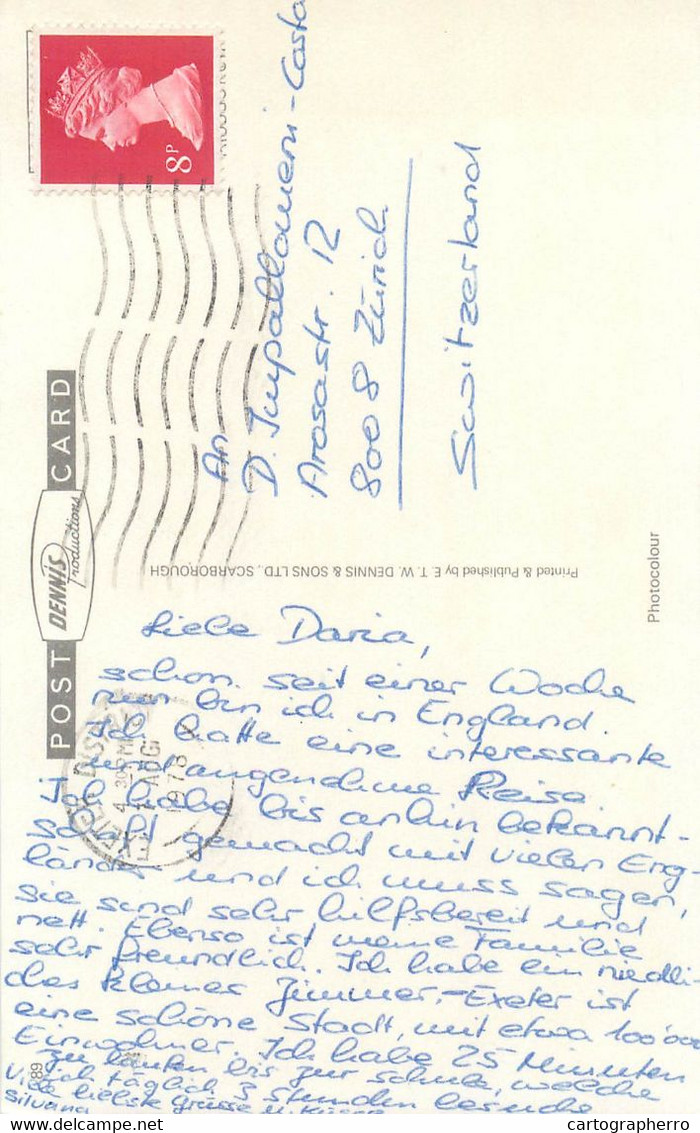 8P
POST CARD
DENNIS
Productions
An
D. Impallomeni-Costa
Arosastr. 12
8008 Zürich
Switzerland
Printed & Published by E. T. W. DENNIS & SONS LTD., SCARBOROUGH
Photocolour
EXETER
1978
Liebe Daria,
schon seit einer Woche
nun bin ich in England.
Ich hatte eine interessante
und angenehme Reise.
Ich habe bis anhin bekannt-
schaft gemacht mit vielen Eng-
ländern und ich muss sagen,
sie sind sehr hilfsbereit und
nett. Ebenso ist meine Familie
sehr freundlich. Ich habe ein niedli-
ches kleines Zimmer. – Exeter ist
eine schöne Stadt, mit etwa 100'000
Einwohner. Ich habe 25 Minuten
zu laufen bis zur Schule, welche
ich täglich 3 Stunden besuche
Viele liebste Grüsse u. Küsse
Silvana
89
cartographerro